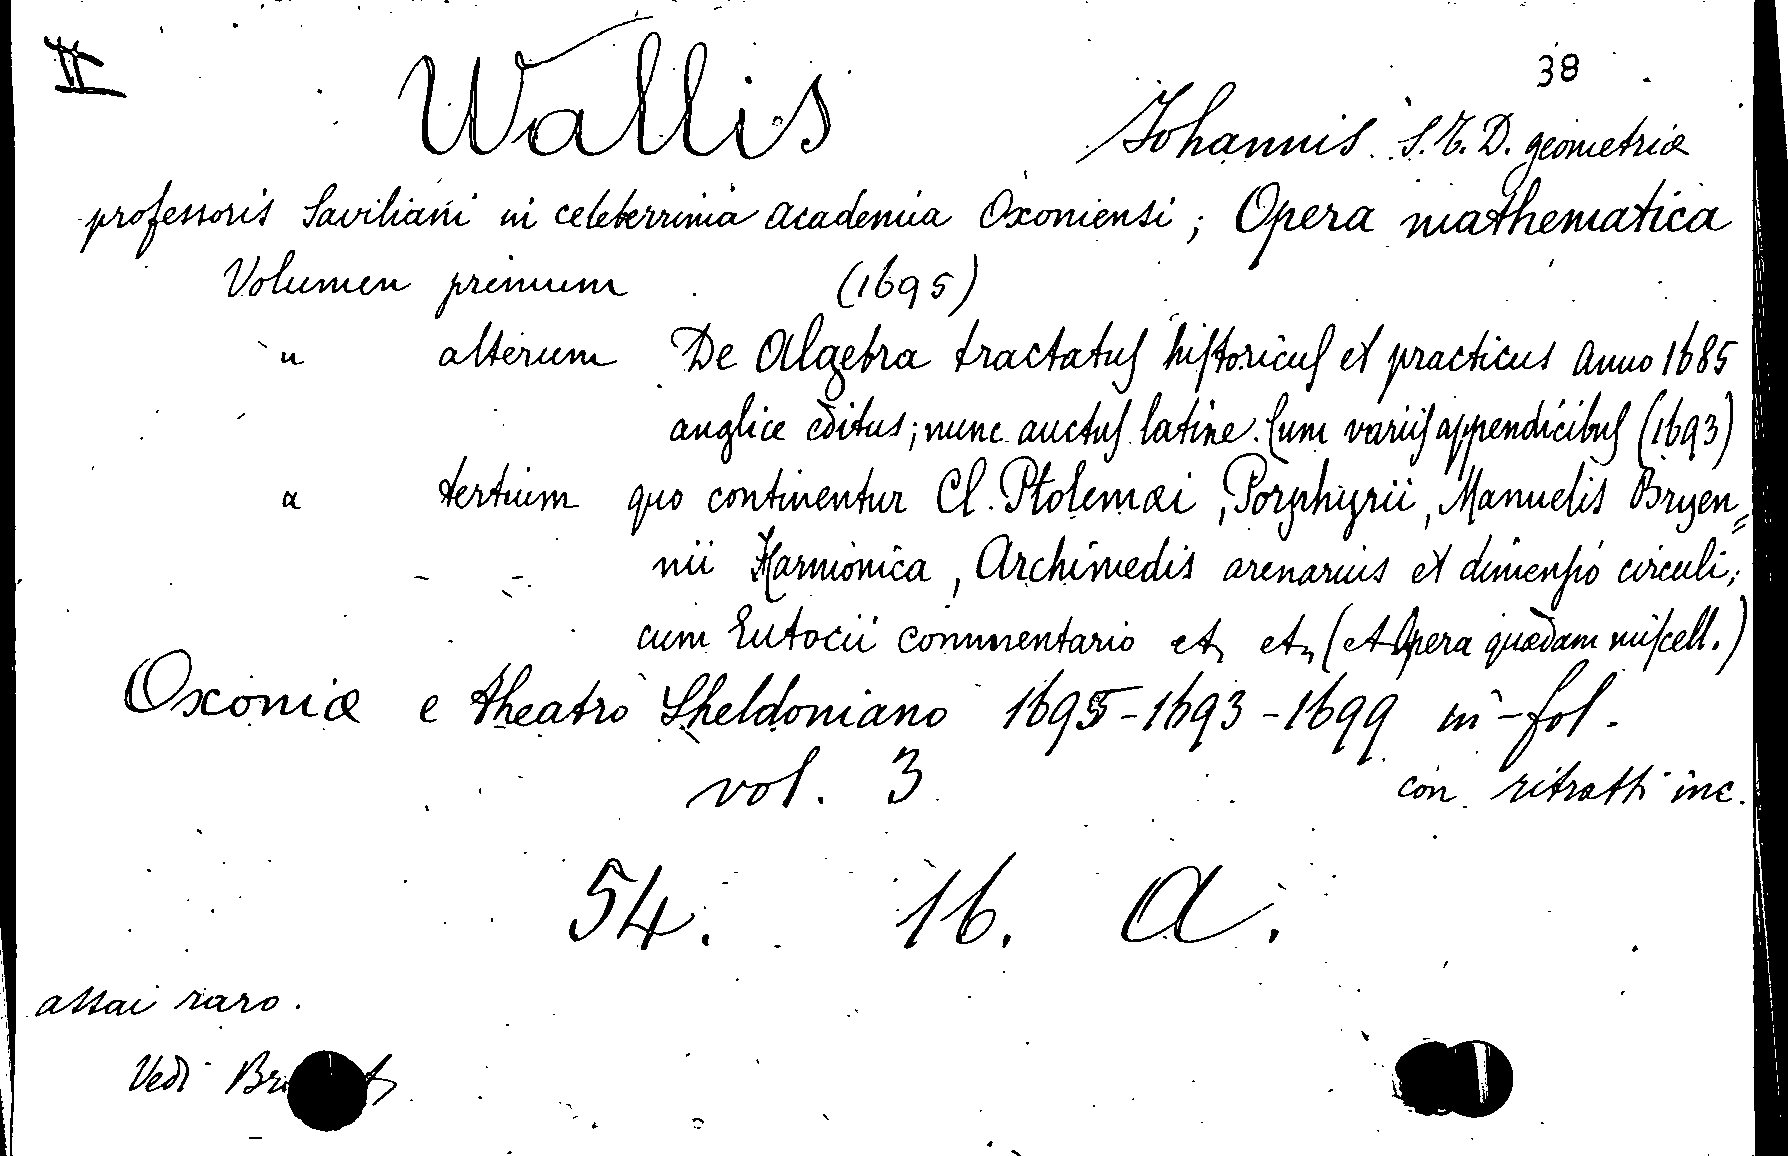 II
38
Wallis Johannis S. T. D. geometriæ
professoris Saviliani in celeberrima academia Oxoniensi; Opera mathematica
Volumen primum (1695)
" alterum De Algebra tractatus historicus et practicus anno 1685
anglice editus; nunc auctus latine. Cum variis appendicibus (1693)
" tertium quo continentur Cl. Ptolemæi, Porphyrii, Manuelis Bryen=
nii Harmonica, Archimedis arenarius et dimensio circuli;
cum Eutocii commentario etc etc (et Opera quædam miscell.)
Oxoniæ e theatro Sheldoniano 1695-1693-1699 in-fol.
vol. 3 con ritratti inc.
54. 16. A.
assai raro.
Vedi